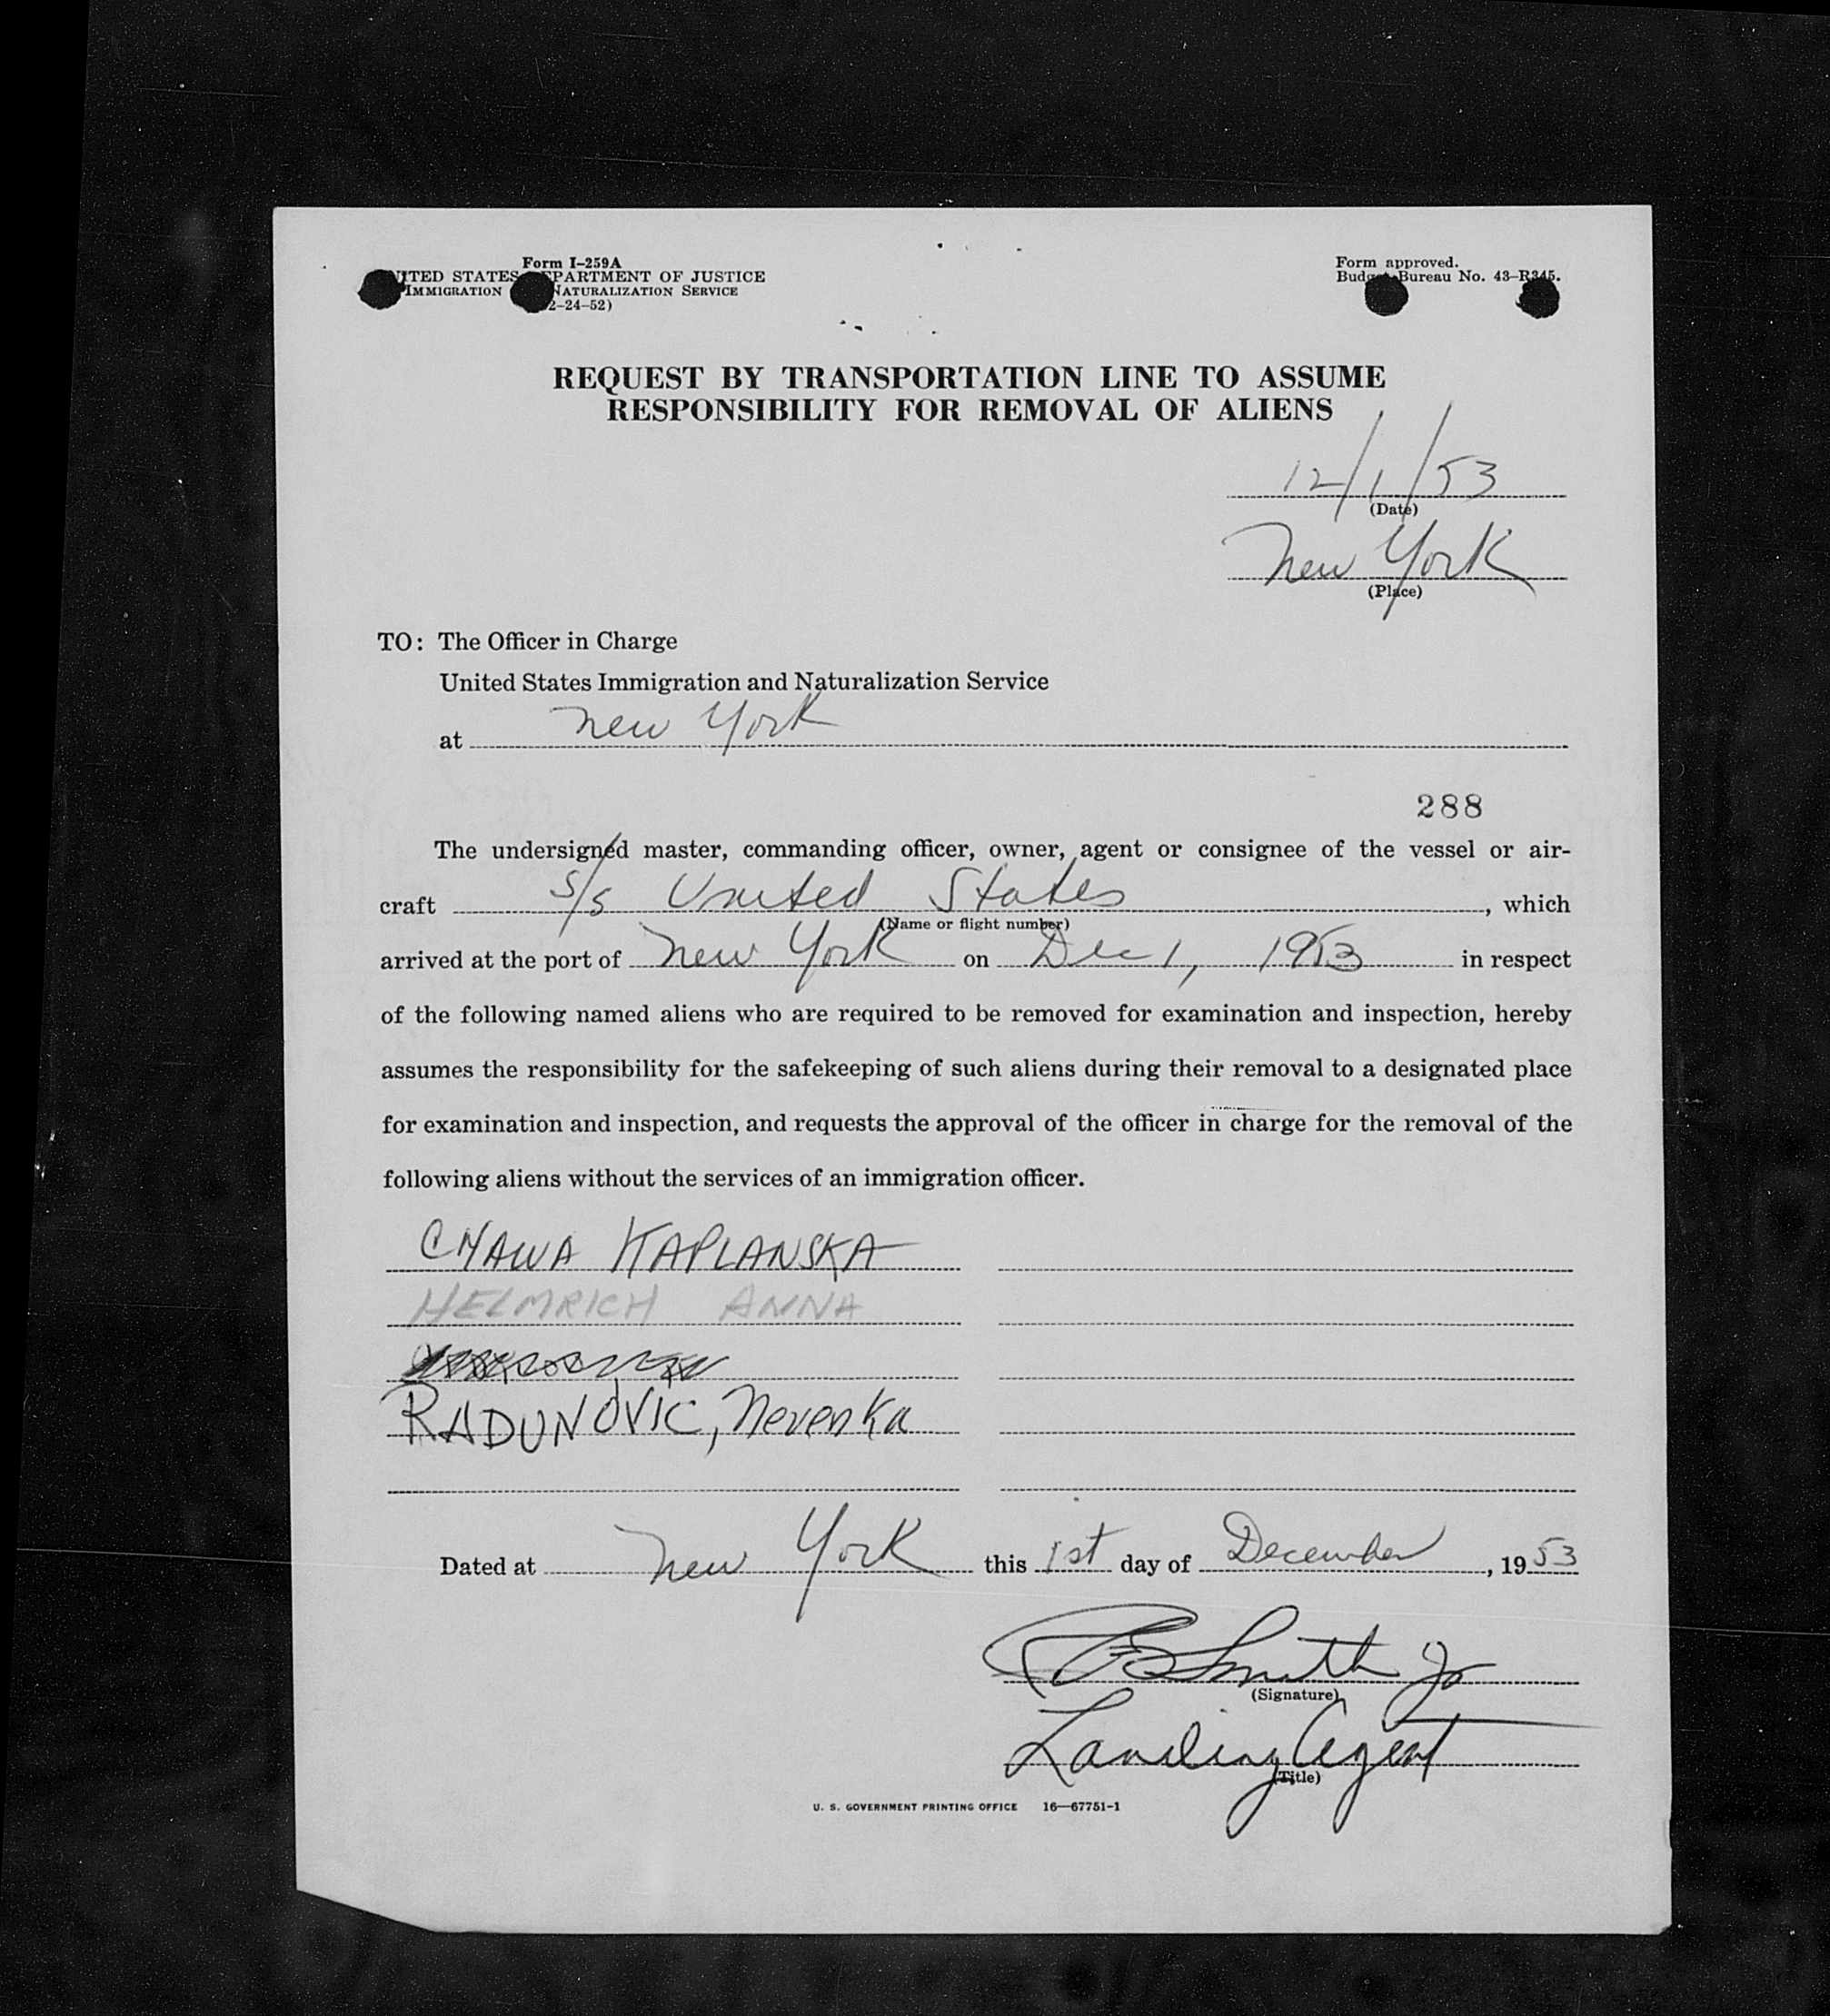 Form I-259A
UNITED STATES DEPARTMENT OF JUSTICE
IMMIGRATION NATURALIZATION SERVICE
2-24-52)
Form approved.
Budget Bureau No. 43-R345.
REQUEST BY TRANSPORTATION LINE TO ASSUME
RESPONSIBILITY FOR REMOVAL OF ALIENS
12/1/53
(Date)
New York
(Place)
TO: The Officer in Charge
United States Immigration and Naturalization Service
at New York
288
The undersigned master, commanding officer, owner, agent or consignee of the vessel or air-
craft S/S United States, which
(Name or flight number)
arrived at the port of New York on Dec 1, 1953 in respect
of the following named aliens who are required to be removed for examination and inspection, hereby
assumes the responsibility for the safekeeping of such aliens during their removal to a designated place
for examination and inspection, and requests the approval of the officer in charge for the removal of the
following aliens without the services of an immigration officer.
CHAWA KAPLANSKA
HELMRICH ANNA
RADUNOVIC, Nevenka
Dated at New York this 1st day of December, 1953
Smith Jr
(Signature)
Landing Agent
(Title)
U. S. GOVERNMENT PRINTING OFFICE 16—67751-1